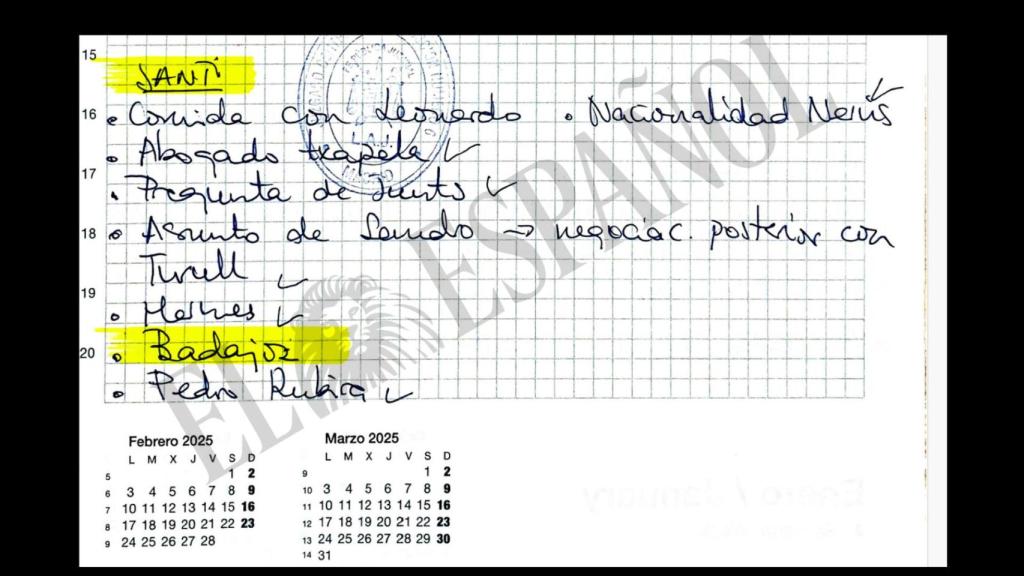 15
SANTI
16 • Comida con Leonardo • Nacionalidad Nerús ✓
• Abogado trapela ✓
17
• Pregunta de Junts ✓
18 • Asunto de Sandro → negociac. posterior con
Turull ✓
19
• Hermes ✓
20 • Badajoz
• Pedro Rubira ✓
EL ESPAÑOL
Febrero 2025
L M X J V S D
5 1 2
6 3 4 5 6 7 8 9
7 10 11 12 13 14 15 16
8 17 18 19 20 21 22 23
9 24 25 26 27 28
Marzo 2025
L M X J V S D
9 1 2
10 3 4 5 6 7 8 9
11 10 11 12 13 14 15 16
12 17 18 19 20 21 22 23
13 24 25 26 27 28 29 30
14 31
Enero / January